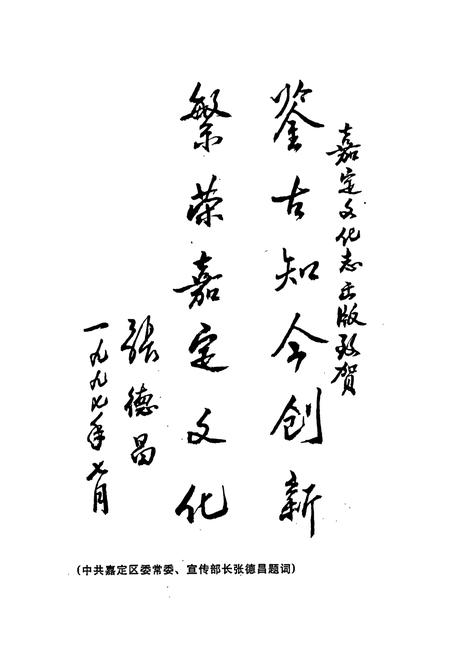 嘉定文化志出版致贺
鉴古知今创新
繁荣嘉定文化
張德昌
一九九七年七月
(中共嘉定区委常委、宣传部长张德昌题词)